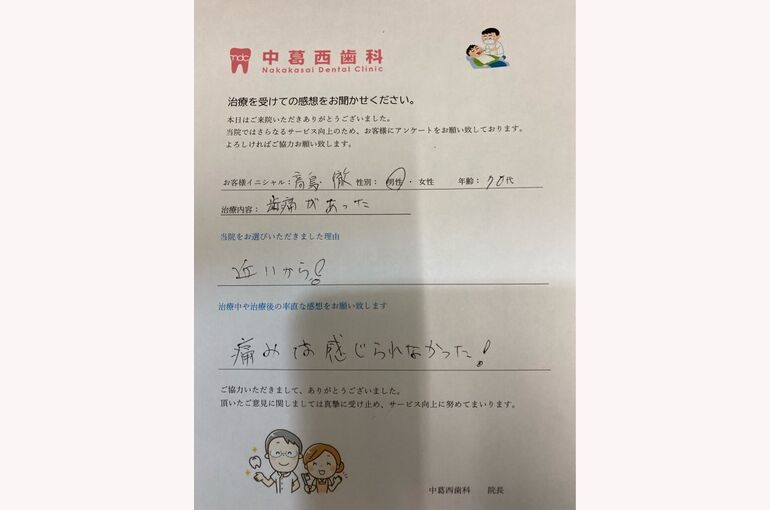 mdc 中葛西歯科
Nakakasai Dental Clinic
治療を受けての感想をお聞かせください。
本日はご来院いただきありがとうございました。
当院ではさらなるサービス向上のため、お客様にアンケートをお願い致しております。
よろしければご協力お願い致します。
お客様イニシャル：高島 徹 性別： 男性 ・ 女性 年齢：70代
治療内容： 歯痛があった
当院をお選びいただきました理由
近いから!
治療中や治療後の率直な感想をお願い致します
痛みは感じられなかった!
ご協力いただきまして、ありがとうございました。
頂いたご意見に関しましては真摯に受け止め、サービス向上に努めてまいります。
中葛西歯科 院長